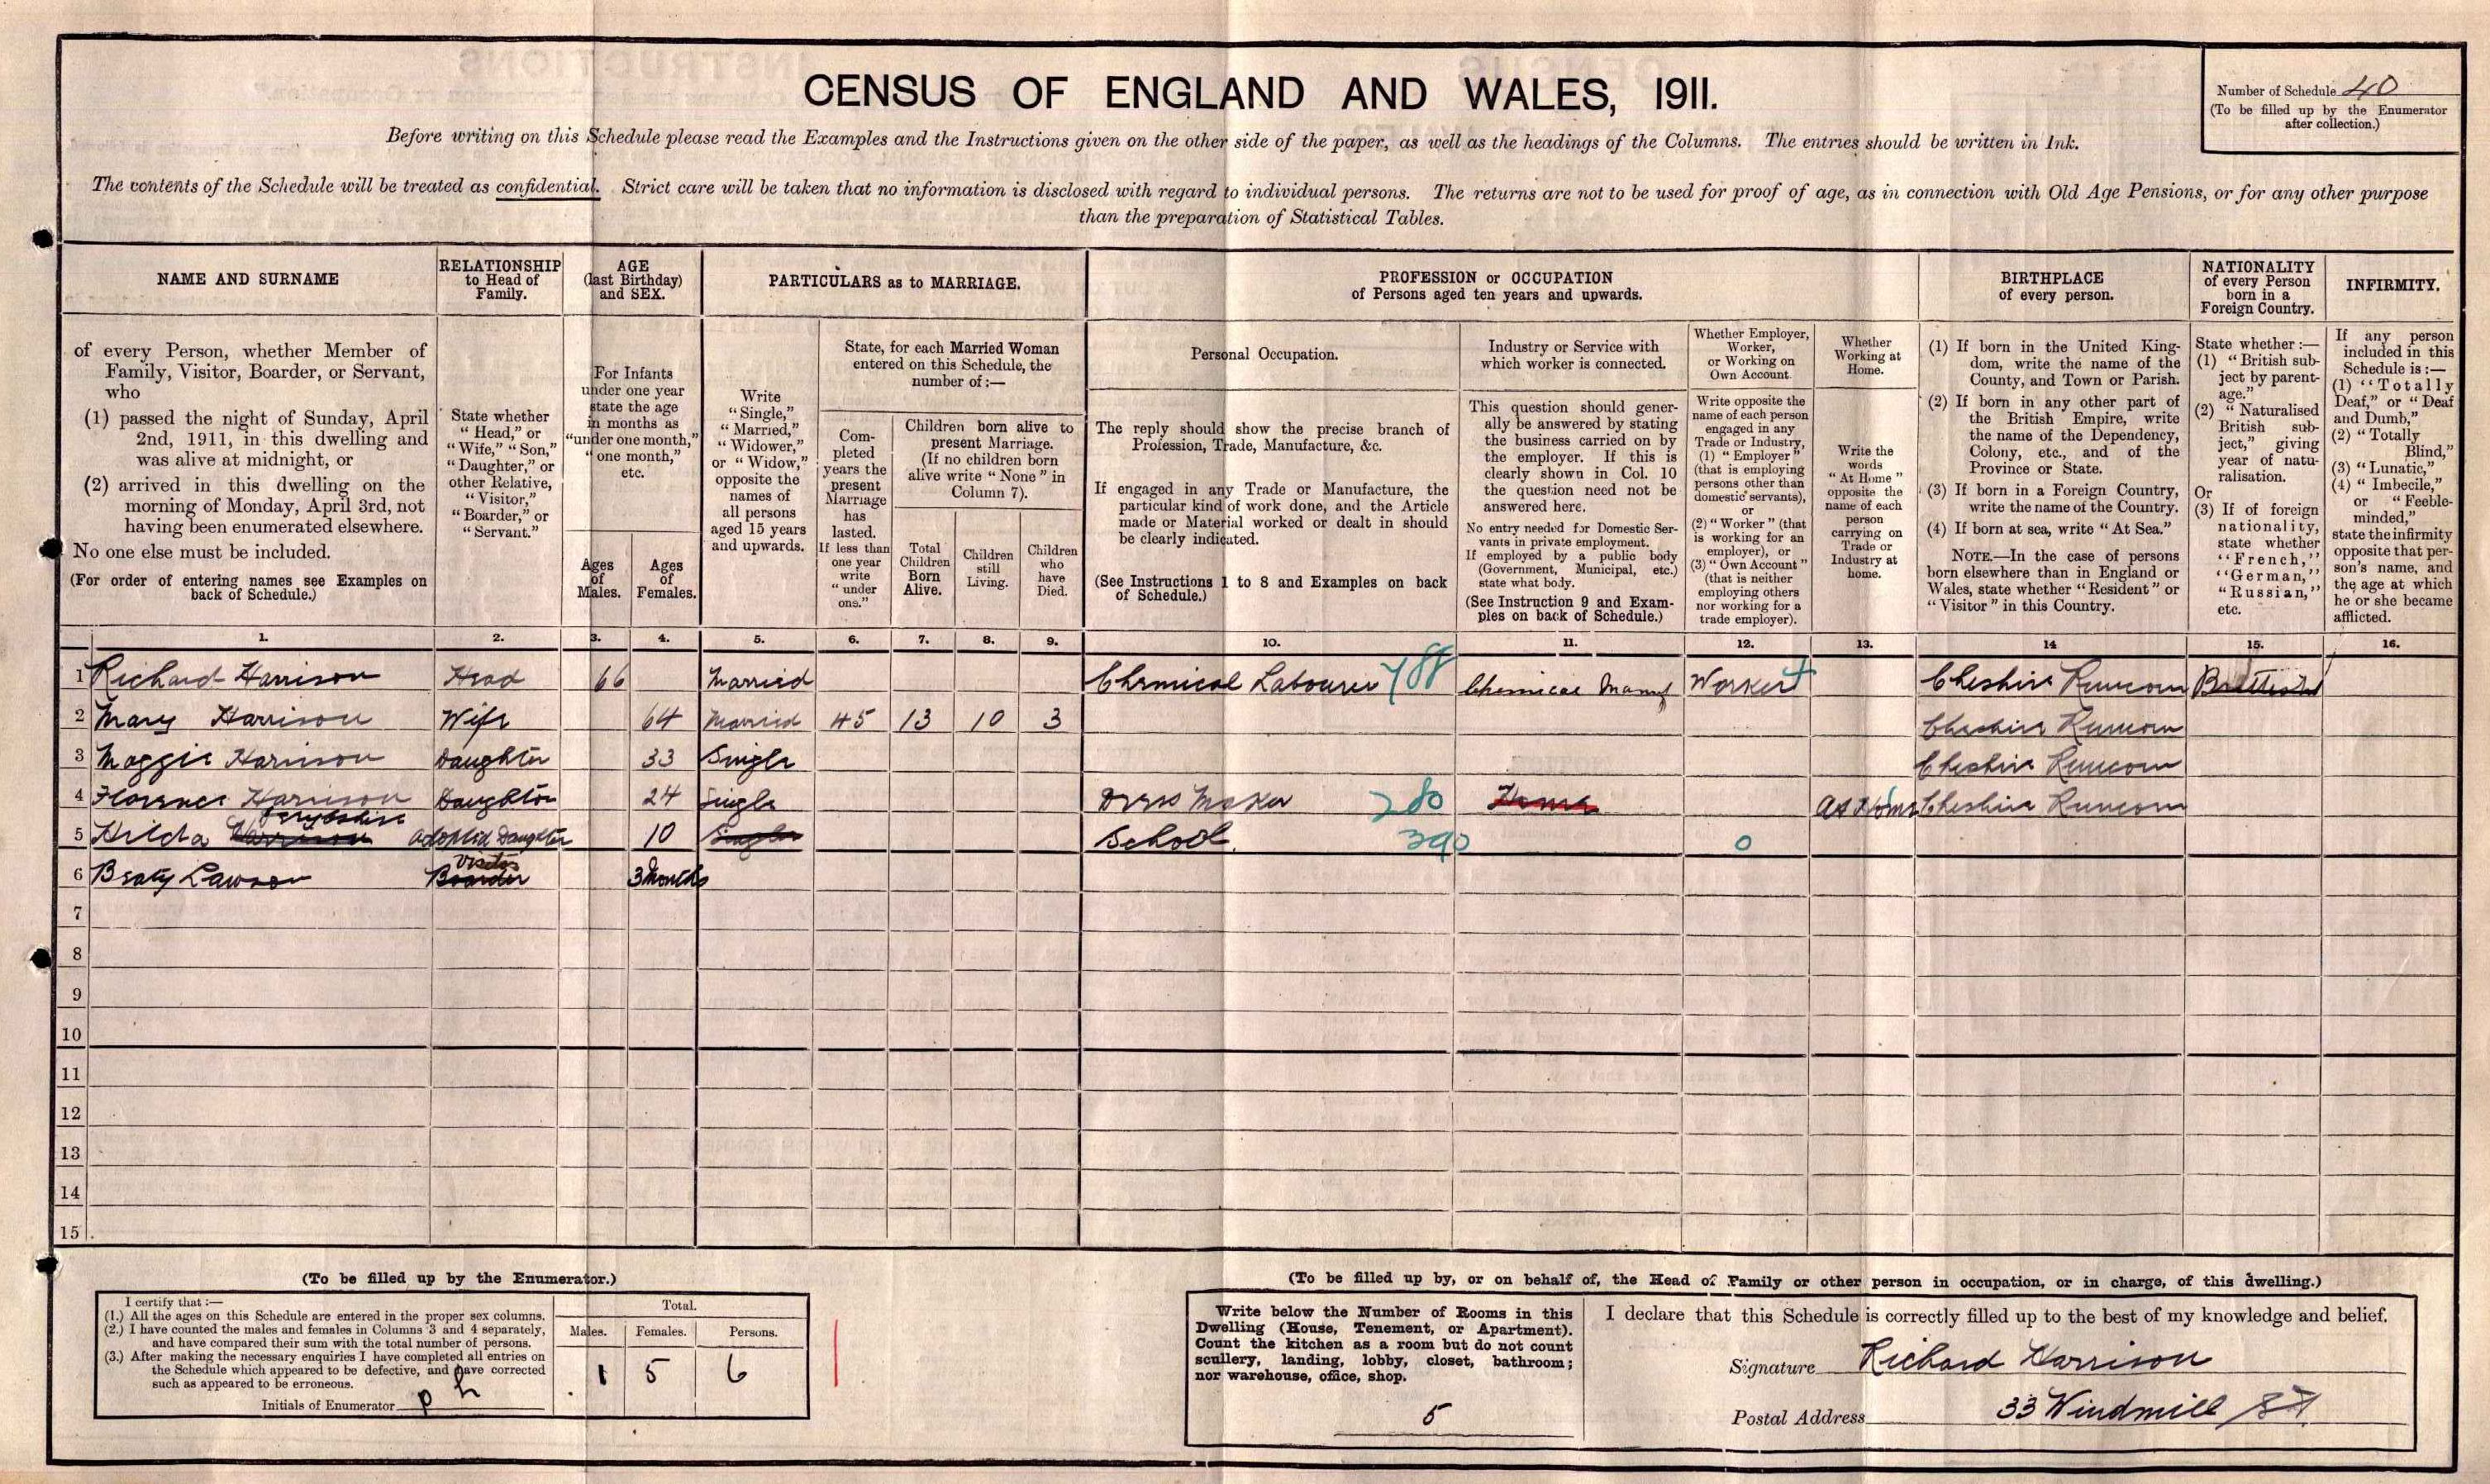 CENSUS OF ENGLAND AND WALES, 1911.
Number of Schedule 40
(To be filled up by the Enumerator
after collection.)
Before writing on this Schedule please read the Examples and the Instructions given on the other side of the paper, as well as the headings of the Columns. The entries should be written in Ink.
The contents of the Schedule will be treated as confidential. Strict care will be taken that no information is disclosed with regard to individual persons. The returns are not to be used for proof of age, as in connection with Old Age Pensions, or for any other purpose
than the preparation of Statistical Tables.
NAME AND SURNAME
of every Person, whether Member of
Family, Visitor, Boarder, or Servant,
who
(1) passed the night of Sunday, April
2nd, 1911, in this dwelling and
was alive at midnight, or
(2) arrived in this dwelling on the
morning of Monday, April 3rd, not
having been enumerated elsewhere.
No one else must be included.
(For order of entering names see Examples on
back of Schedule.)
RELATIONSHIP
to Head of
Family.
State whether
"Head," or
"Wife," "Son,"
"Daughter," or
other Relative,
"Visitor,"
"Boarder," or
"Servant."
AGE
(last Birthday)
and SEX.
For Infants
under one year
state the age
in months as
"under one month,"
"one month,"
etc.
Ages
of
Males.
Ages
of
Females.
PARTICULARS as to MARRIAGE.
Write
"Single,"
"Married,"
"Widower,"
or "Widow,"
opposite the
names of
all persons
aged 15 years
and upwards.
State, for each Married Woman
entered on this Schedule, the
number of:—
Com-
pleted
years the
present
Marriage
has
lasted.
If less than
one year
write
"under
one."
Children born alive to
present Marriage.
(If no children born
alive write "None" in
Column 7).
Total
Children
Born
Alive.
Children
still
Living.
Children
who
have
Died.
PROFESSION or OCCUPATION
of Persons aged ten years and upwards.
Personal Occupation.
The reply should show the precise branch of
Profession, Trade, Manufacture, &c.
If engaged in any Trade or Manufacture, the
particular kind of work done, and the Article
made or Material worked or dealt in should
be clearly indicated.
(See Instructions 1 to 8 and Examples on back
of Schedule.)
Industry or Service with
which worker is connected.
This question should gener-
ally be answered by stating
the business carried on by
the employer. If this is
clearly shown in Col. 10
the question need not be
answered here.
No entry needed for Domestic Ser-
vants in private employment.
If employed by a public body
(Government, Municipal, etc.)
state what body.
(See Instruction 9 and Exam-
ples on back of Schedule.)
Whether Employer,
Worker,
or Working on
Own Account
Write opposite the
name of each person
engaged in any
Trade or Industry,
(1) "Employer"
(that is employing
persons other than
domestic servants),
or
(2) "Worker" (that
is working for an
employer), or
(3) "Own Account"
(that is neither
employing others
nor working for a
trade employer).
Whether
Working at
Home.
Write the
words
"At Home"
opposite the
name of each
person
carrying on
Trade or
Industry at
home.
BIRTHPLACE
of every person.
(1) If born in the United King-
dom, write the name of the
County, and Town or Parish.
(2) If born in any other part of
the British Empire, write
the name of the Dependency,
Colony, etc., and of the
Province or State.
(3) If born in a Foreign Country,
write the name of the Country.
(4) If born at sea, write "At Sea."
NOTE.—In the case of persons
born elsewhere than in England or
Wales, state whether "Resident" or
"Visitor" in this Country.
NATIONALITY
of every Person
born in a
Foreign Country.
State whether:—
(1) "British sub-
ject by parent-
age."
(2) "Naturalised
British sub-
ject," giving
year of natu-
ralisation.
Or
(3) If of foreign
nationality,
state whether
"French,"
"German,"
"Russian,"
etc.
INFIRMITY.
If any person
included in this
Schedule is:—
(1) "Totally
Deaf," or "Deaf
and Dumb,"
(2) "Totally
Blind,"
(3) "Lunatic,"
(4) "Imbecile,"
or "Feeble-
minded,"
state the infirmity
opposite that per-
son's name, and
the age at which
he or she became
afflicted.
1. 2. 3. 4. 5. 6. 7. 8. 9. 10. 11. 12. 13. 14 15. 16.
1 Richard Harrison Head 66 Married Chemical Labourer 788 Chemical Manuf Worker Cheshire Runcorn British
2 Mary Harrison Wife 64 Married 45 13 10 3 Cheshire Runcorn
3 Maggie Harrison Daughter 33 Single Cheshire Runcorn
4 Florence Harrison Daughter 24 Single Dress Maker 280 Home At Home Cheshire Runcorn
5 Hilda Harrison adopted Daughter 10 Single School. 390 0
Visitor
6 Beaty Lawson Boarder 3 Months
7
8
9
10
11
12
13
14
15
(To be filled up by the Enumerator.)
I certify that:—
(1.) All the ages on this Schedule are entered in the proper sex columns.
(2.) I have counted the males and females in Columns 3 and 4 separately,
and have compared their sum with the total number of persons.
(3.) After making the necessary enquiries I have completed all entries on
the Schedule which appeared to be defective, and have corrected
such as appeared to be erroneous.
Initials of Enumerator P h
Total.
Males. Females. Persons.
1 5 6
(To be filled up by, or on behalf of, the Head of Family or other person in occupation, or in charge, of this dwelling.)
Write below the Number of Rooms in this
Dwelling (House, Tenement, or Apartment).
Count the kitchen as a room but do not count
scullery, landing, lobby, closet, bathroom;
nor warehouse, office, shop.
5
I declare that this Schedule is correctly filled up to the best of my knowledge and belief.
Signature Richard Harrison
Postal Address 33 Windmill St